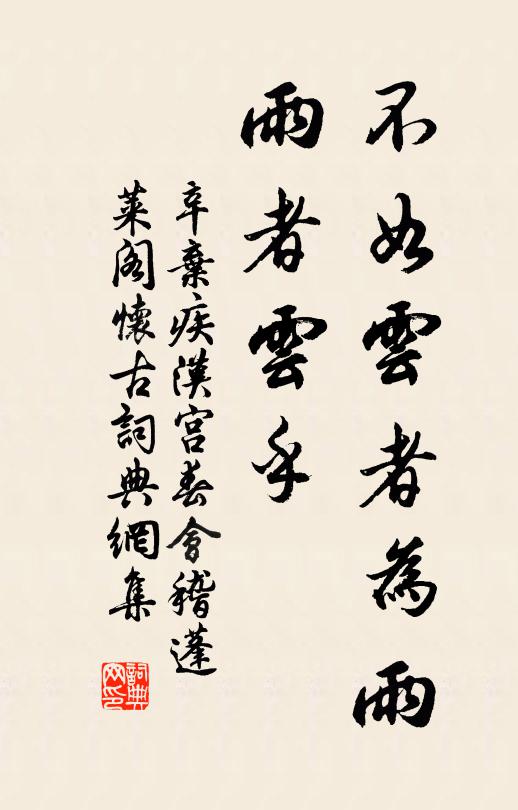 不如雲者為雨
雨者雲乎
辛棄疾漢宮春會稽蓬
萊閣懷古詞典網集
詞典
网印